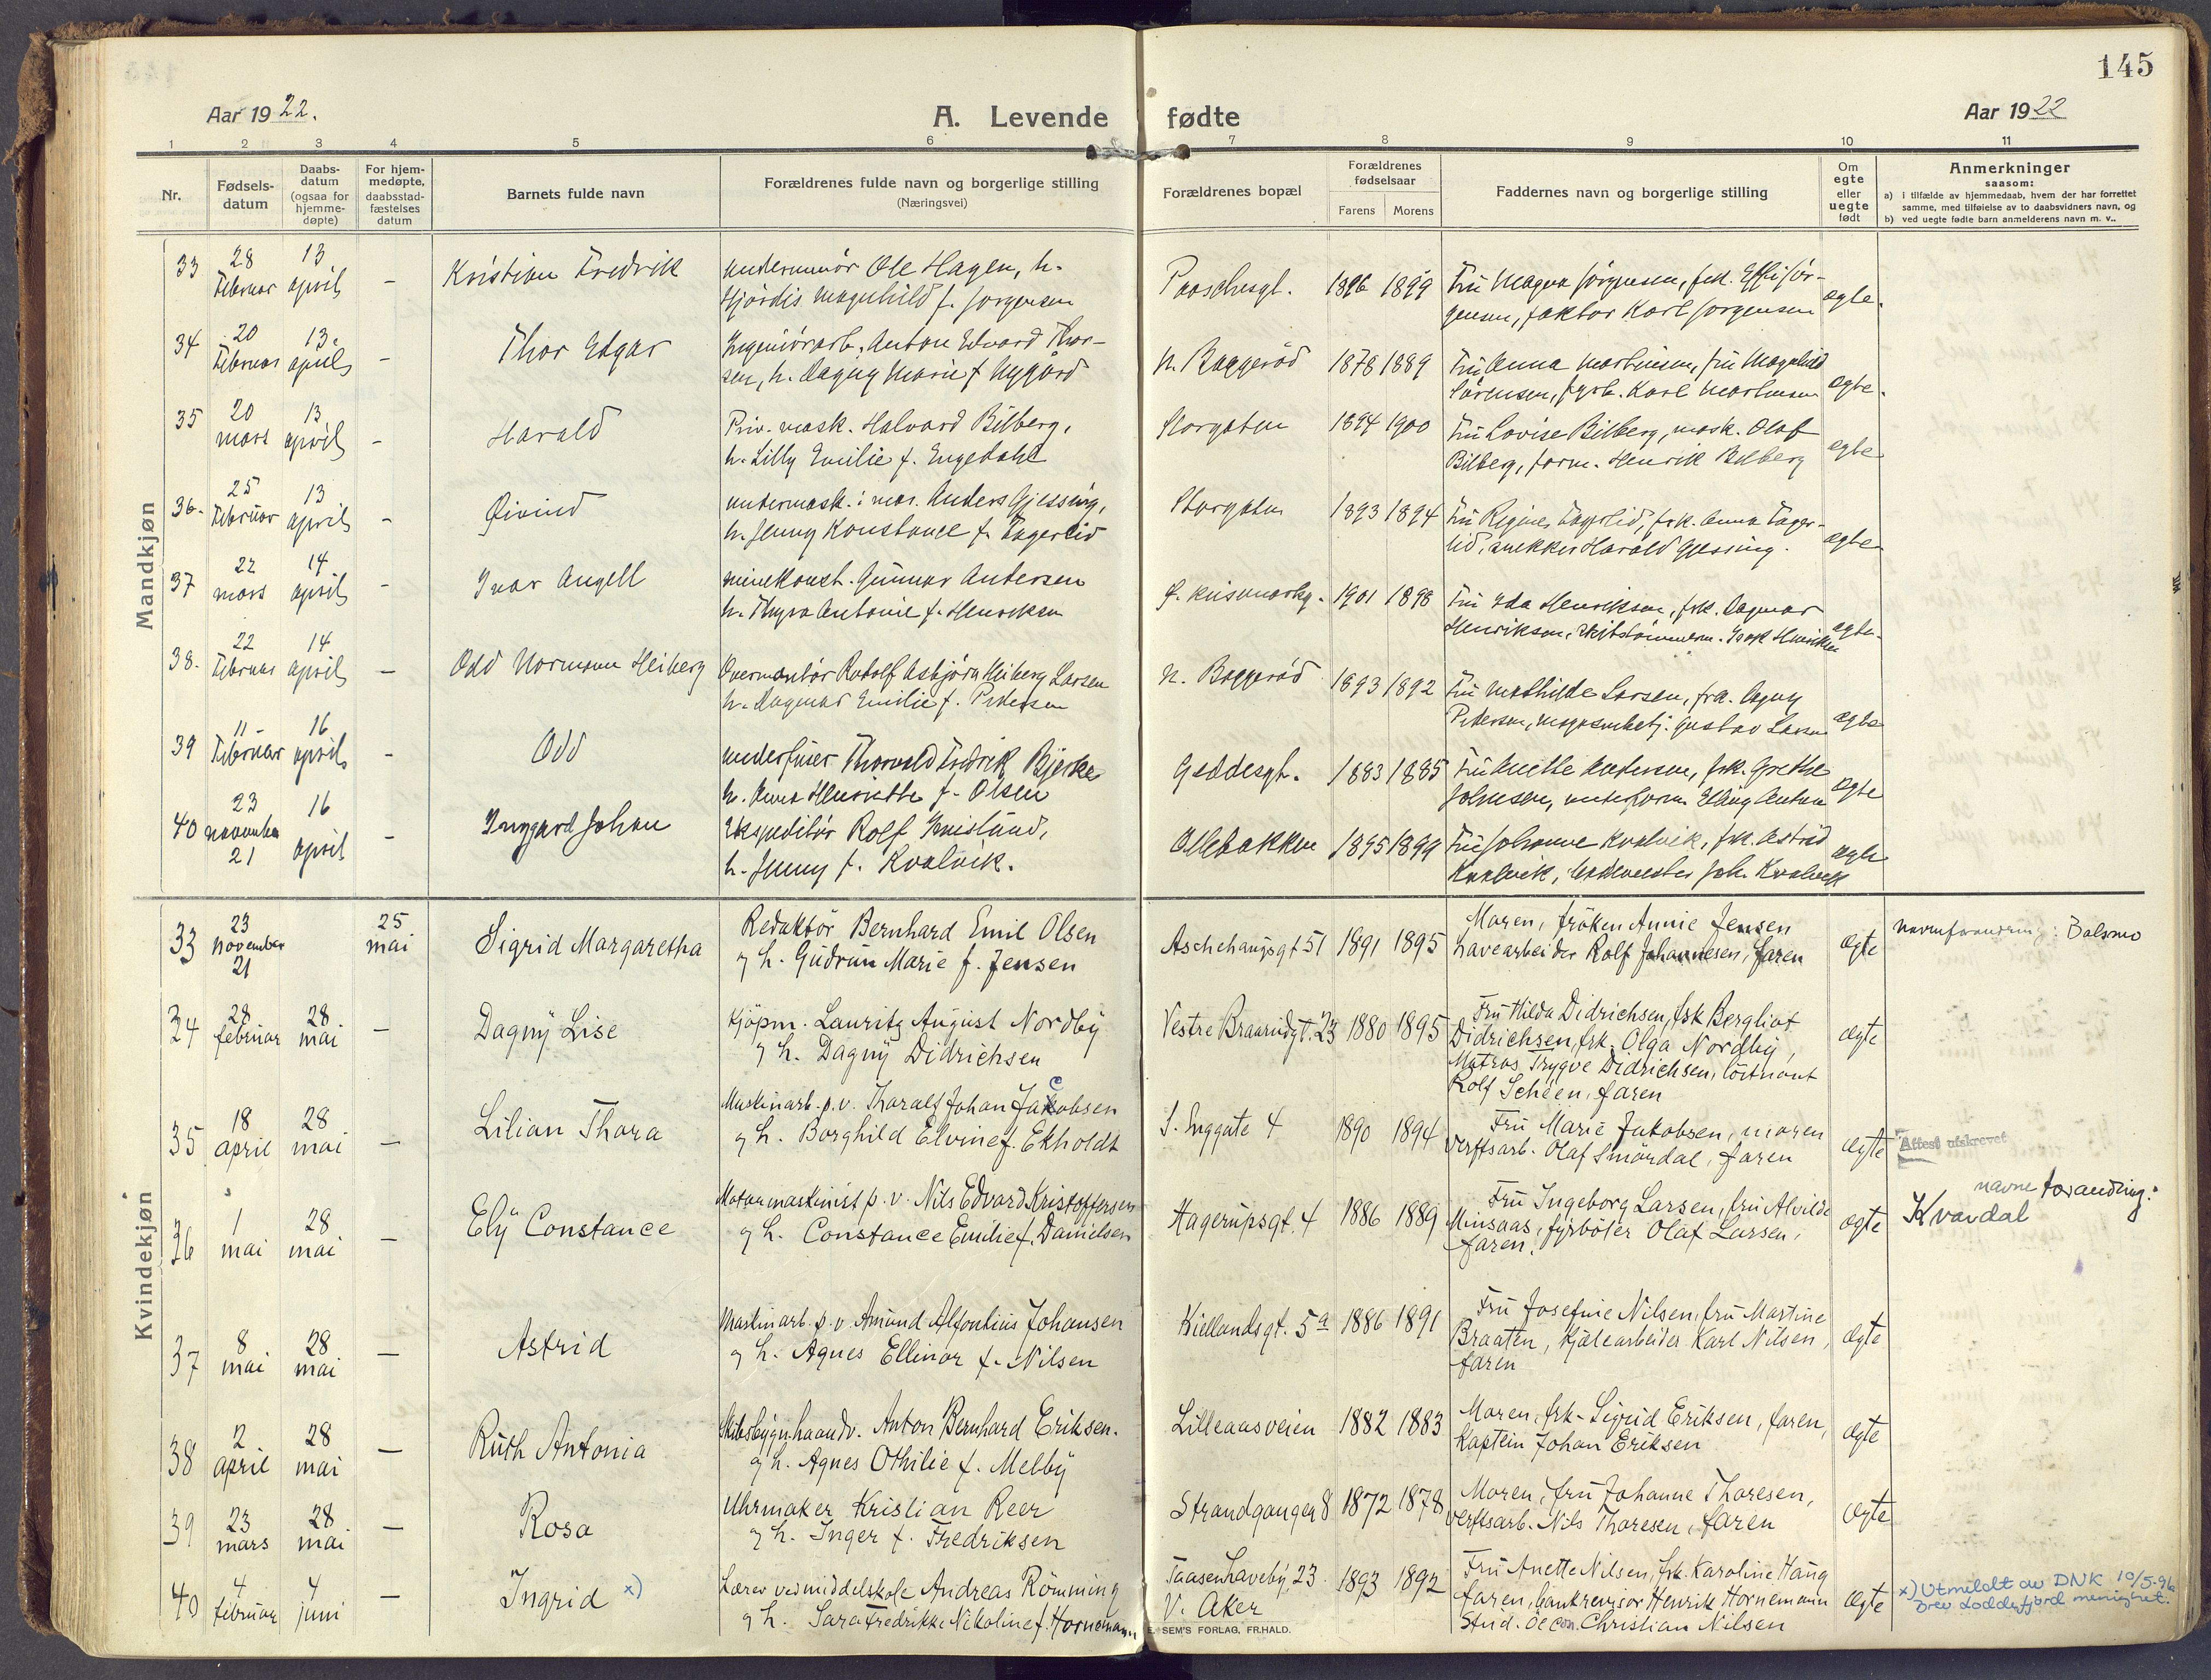 145
Aar 1922.
A. Levende fødte
Aar 1922
1 2 3 4 5 6 7 8 9 10 11
Nr.
Fødsels-
datum
Daabs-
datum
(ogsaa for
hjemme-
døpte)
For hjem-
medøpte,
daabsstad-
fæstelses
datum
Barnets fulde navn
Forældrenes fulde navn og borgerlige stilling
(Næringsvei)
Forældrenes bopæl
Forældrenes
fødselsaar
Farens Morens
Faddernes navn og borgerlige stilling
Om
egte
eller
uegte
født
Anmerkninger
saasom:
a) i tilfælde av hjemmedaab, hvem der har forrettet
samme, med tilføielse av to daabsvidners navn, og
b) ved uegte fødte barn anmelderens navn m. v..
Mandkjøn
33 28 februar 13 april - Kristian Fredrik
Ole Hagen, h.
Hjördis Magnhild f. Jorgensen
1896 1899
Fru Magna Jörgensen, frk.
gensen, faktor Karl Jorgensen
egte.
34 20 februar 13. april - Thor Edgar
Anton Edvard Thor-
sen, h. Dagny Marie f. Nygård
N. Baggeröd 1878 1889
Fru Anna Martinsen, fru Magnhild
Sörensen, fyrb. Karl Martinsen
egte.
35 20 mars 13 april - Harald
Priv. mask. Halvard Bilberg,
h. Lilly Emilie f. Engedahl
Storgaten 1894 1900
Fru Lovise Bilberg, mask. Olaf
Bilberg, form. Henrik Bilberg
egte
36. 25 februar 13 april - Øivind
undermask. i mar. Anders Gjessing,
h. Jenny Konstance f. Fagerlid
Storgaten 1893 1894
Fru Regine Fagerlid, frk. Anna Fager-
lid, snekker Harald Gjessing.
egte
37 22 mars 14 april - Ivar Angell
minekonst. Gunnar Andersen
h. Thyra Antonie f. Henriksen
1901 1898
Fru Eda Henriksen, frk. Dagmar
Henriksen,
egte.
38. 22 februar 14 april - Odd Normann Heiberg
Overmontör Rudolf Asbjörn Heiberg Larsen
h. Dagmar Emilie f. Pedersen
N. Baggeröd 1893 1892
Fru Mathilde Larsen, fra. Dagny
Pedersen, Gustav Larsen
egte
39 11 februar 16 april - Odd
Thorvald Fredrik Bjerke
h. Anna Henriette f. Olsen
Geddesgt. 1883 1885
Fru Anette Andersen, frk. Grethe
Johnsen,
egte
40 23 november 21 16 april - Inggard Johan
Ekspeditör Rolf
h. Jenny f. Kvalvik.
Ollebakken 1895 1899
Fru Johanne Kvalvik, frk. Astrid
Kvalvik, Joh. Kvalvik
egte
Kvindekjøn
33 23 november 21 25 mai Sigrid Margaretha
Redaktör Bernhard Emil Olsen
og h. Gudrun Marie f. Jensen
Aschehaugsgt 51 1891 1895
Moren, fröken Annie Jensen
havearbeider Rolf Johannesen, faren
egte
navneforandring: Dalsmo
34 28 februar 28 mai - Dagny Lise
Kjöpm. Lauritz August Nordby
og h. Dagny Didrichsen
Vestre Braarudgt. 23 1880 1895
Fru Hilda Didrichsen, frk Bergliot
Didrichsen, frk. Olga Nordby,
Matros Trygve Didrichsen, löitnant
Rolf Scheen, faren
egte
35 18 april 28 mai - Lilian Thora
Maskinarb. p.v. Tharald Johan Jakobsen
og h. Borghild Elvine f. Ekholdt
S. Enggate 4 1890 1894
Fru Marie Jakobsen, moren
verftsarb. Olaf Smördal, faren
egte
Attest utskrevet
36 1 mai 28 mai - Ely Constance
Motormaskinist p.v. Nils Edvard Kristoffersen
og h. Constance Emilie f. Danielsen
Hagerupsgt. 4 1886 1889
Fru Ingeborg Larsen, fru Alvilde
Minsaas, fyrböter Olaf Larsen,
faren.
egte
navneforandring:
Kvardal
37 8 mai 28 mai - Astrid
Maskinarb. p.v. Amund Alfontius Johansen
og h. Agnes Ellinor f. Nilsen
Kiellandsgt. 5a 1886 1891
Fru Josefine Nilsen, fru Martine
Braaten, kjelearbeider Karl Nilsen,
faren
egte
38 2 april 28 mai - Ruth Antonia
Skibsbygn.haandv. Anton Bernhard Eriksen.
og h. Agnes Othilie f. Melby
Lilleaasveien 1882 1883
Moren, frk. Sigrid Eriksen, faren,
Kaptein Johan Eriksen
egte
39 23 mars 28 mai - Rosa
Uhrmaker Kristian Reer
og h. Inger f. Fredriksen
Strandgangen 8 1872 1878
Moren, fru Johanne Thoresen,
verftsarb. Nils Thoresen, faren
egte
40 4 februar 4 juni - Ingrid x)
Lærer ved middelskole Andreas Römming
og h. Sara Fredrikke Nikoline f. Hornemann
Taasen Haveby 23.
V. Aker
1893 1892
Fru Anette Nilsen, frk. Karoline Haug
faren, bankrevisor Henrik Hornemann
Stud. oecon. Christian Nilsen
egte
x) Utmeldt av DNK 10/5-96
brev Loddefjord menighet.
E. SEM'S FORLAG, FR.HALD.